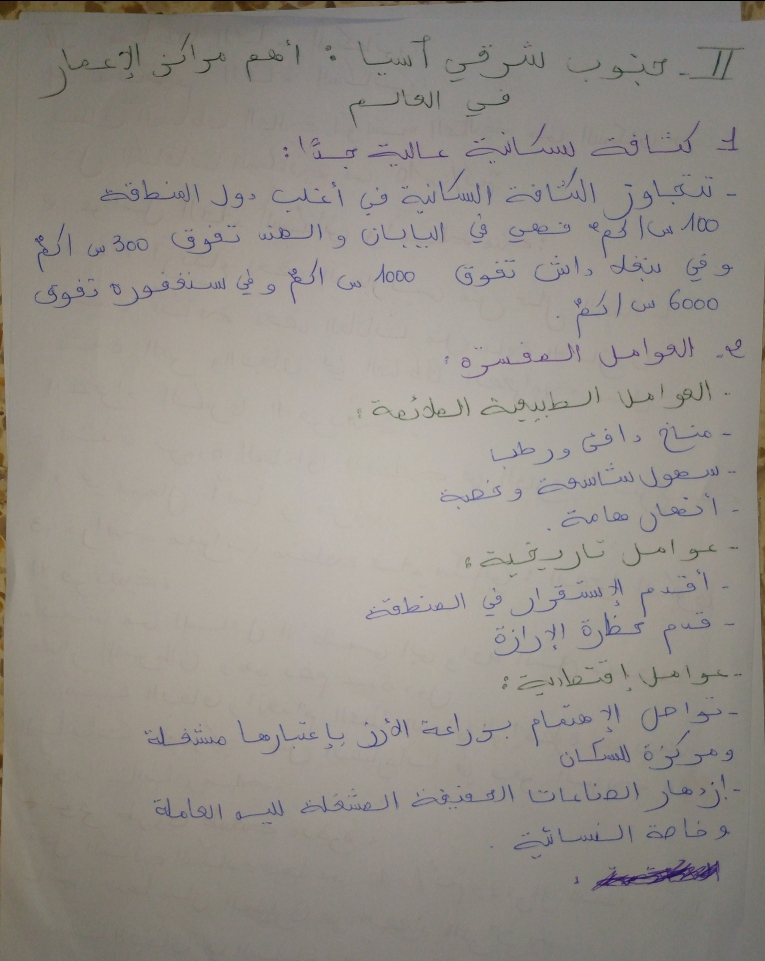 II - جنوب شرقي آسيا : أهم مراكز الإعمار
في العالم
1- كثافة سكانية عالية جدًا :
- تتجاوز الكثافة السكانية في أغلب دول المنطقة
100 س/كم² فهي في اليابان و الهند تفوق 300 س/كم²
و في بنغلاداش تفوق 1000 س/كم² و في سنغفورة تفوق
6000 س/كم² .
2- العوامل المفسرة :
- العوامل الطبيعية الملائمة :
- مناخ دافئ ورطب
- سهول شاسعة وخصبة
- أنهار هامة .
- عوامل تاريخية :
- أقدم الإستقرار في المنطقة
- قدم حظارة الإرازة
- عوامل إقتصادية :
- تواصل الإهتمام بزراعة الأرز بإعتبارها مشغلة
ومركزة للسكان
- إزدهار الصناعات الخفيفة المشغلة لليد العاملة
و خاصة النسائية .